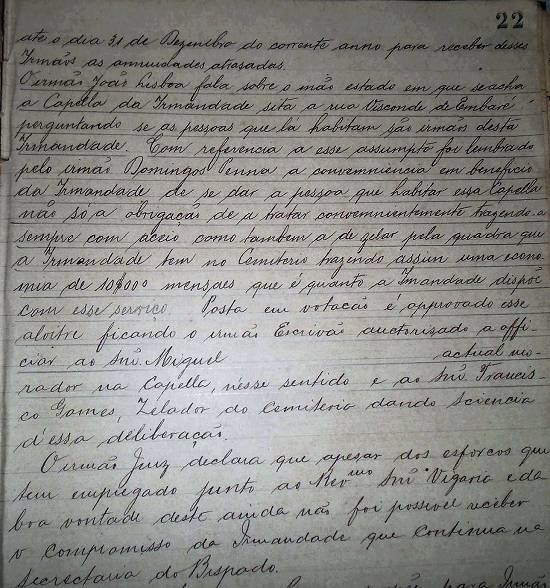 22
até o dia 31 de Dezembro do corrente anno para receber desses
Irmãos as annuidades atrasadas.
O irmão João Lisboa fala sobre o máo estado em que se acha
a Capella da Irmandade sita a rua Visconde de Embaré
perguntando se as pessoas que lá habitam são irmãos desta
Irmandade. Com referencia a esse assumpto foi lembrado
pelo irmão Domingos Penna a convenniencia em beneficio
da Irmandade de se dar a pessoa que habitar essa Capella
não só a obrigação de a tratar convennientemente trazendo-a
sempre com aceio como tambem a de zelar pela quadra que
a Irmandade tem no Cemiterio trazendo assim uma econo-
mia de 10$000 mensaes que é quanto a Imandade dispõe
com esse serviço. Posta em votacão é approvado esse
alvitre ficando o irmão Escrivão auctorizado a offi-
ciar ao Snr. Miguel actual mo-
rador na Capella, nesse sentido e ao Snr. Francis-
co Gomes, Zelador do Cemiterio dando sciencia
d'essa deliberação.
O irmão Juiz declara que apezar dos esforcos que
tem empregado junto ao Revmo Snr Vigario e da
boa vontade deste ainda não foi possivel receber
o compromisso da Irmandade que continua na
Secretaria do Bispado.